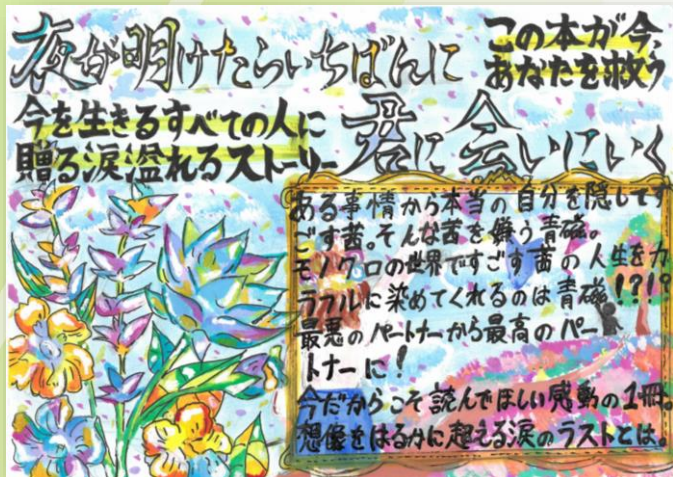 夜が明けたらいちばんに
この本が今、
あなたを救う
君に会いにいく
今を生きるすべての人に
贈る涙溢れるストーリー
ある事情から本当の自分を隠してす
ごす茜。そんな茜を嫌う青磁。
モノクロの世界ですごす茜の人生をカ
ラフルに染めてくれるのは青磁!?!?
最悪のパートナーから最高のパー
トナーに!
今だからこそ読んでほしい感動の1冊。
想像をはるかに超える涙のラストとは。